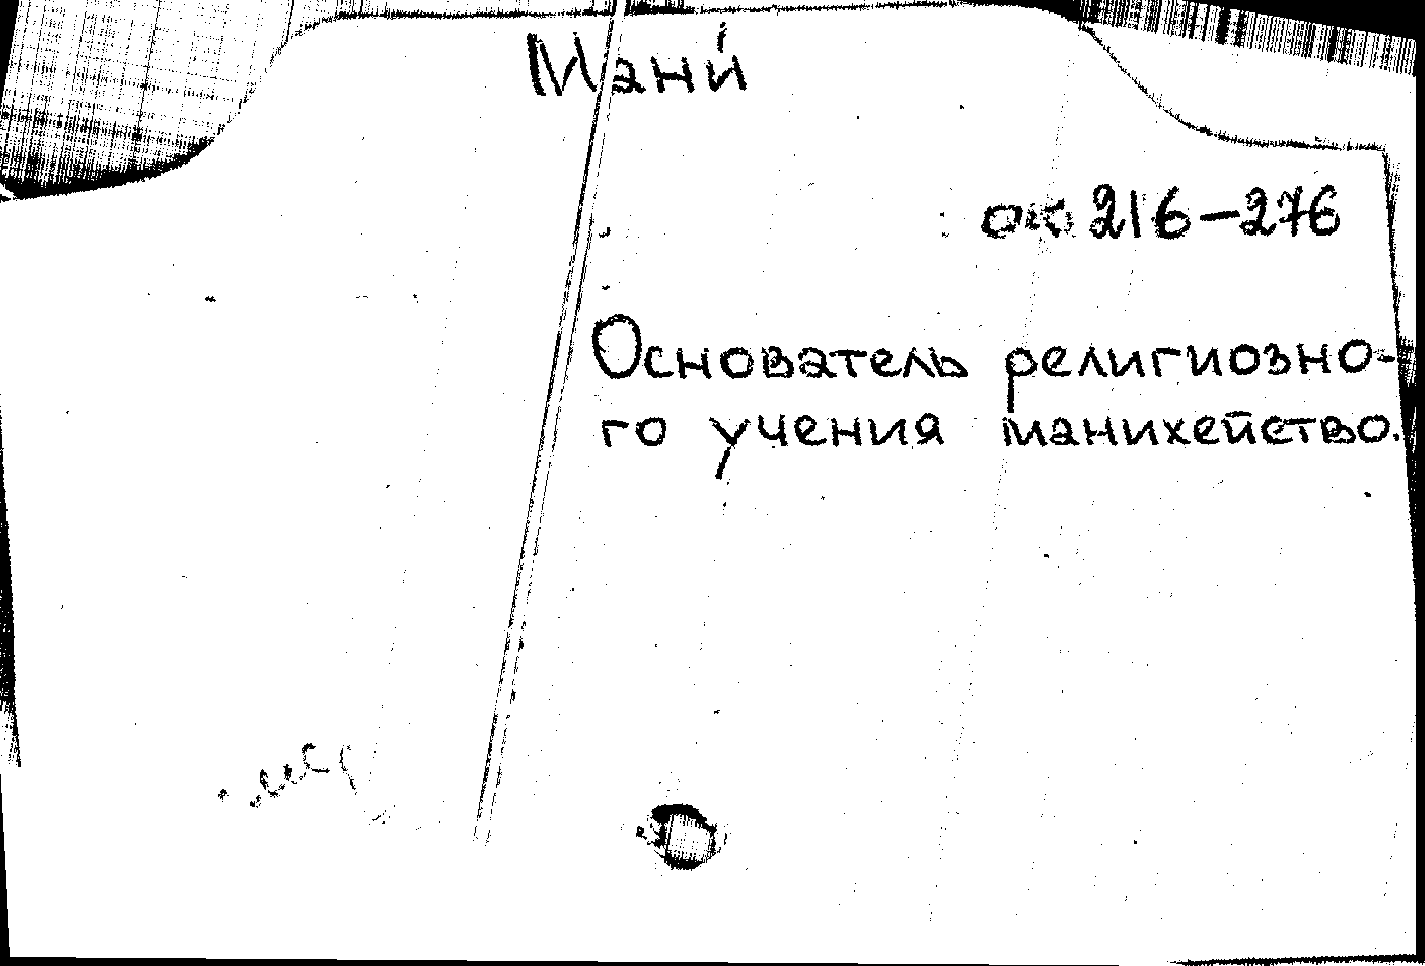 Мани́
ок. 216-276
Основатель религиозно-
го учения манихейство.